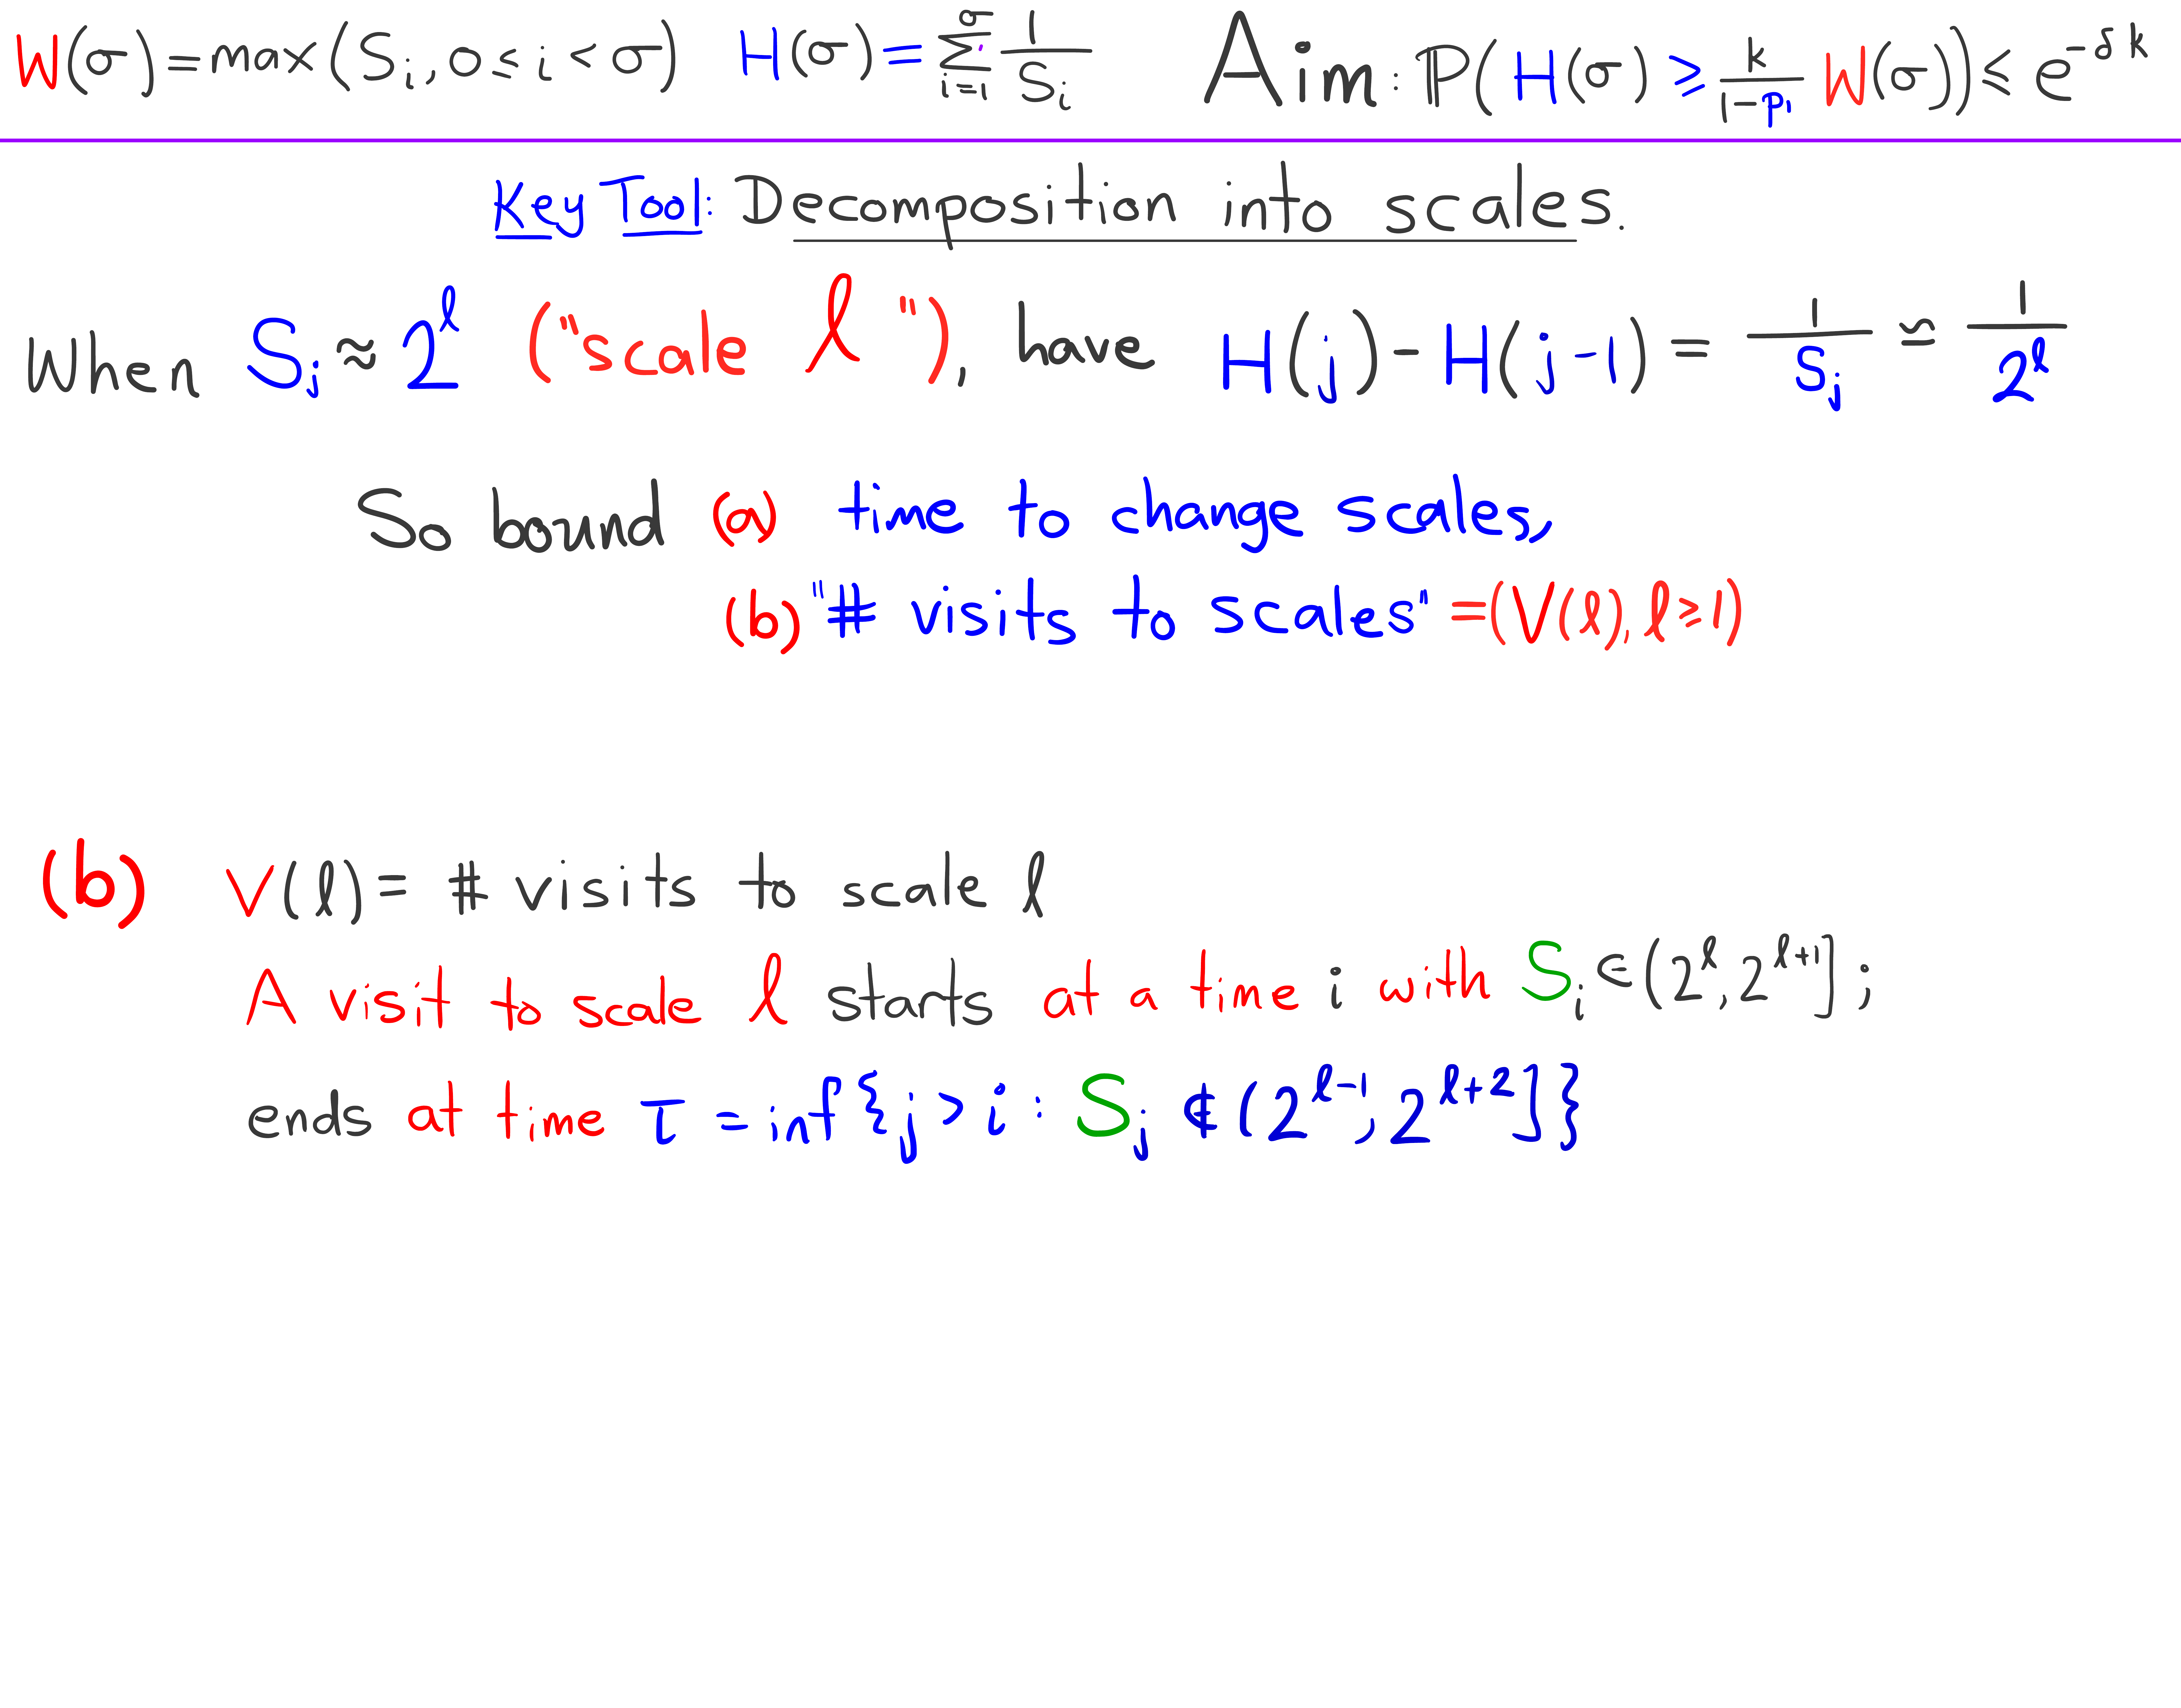 W(σ) = max(S_i, 0 ≤ i < σ) H(σ) = ∑_{i=1}^{σ} 1/S_i Aim: ℙ(H(σ) ≥ k/(1-p_1) W(σ)) ≤ e^{-δk}
Key Tool: Decomposition into scales.
When S_j ≈ 2^ℓ ("scale ℓ"), have H(j) - H(j-1) = 1/S_j ≈ 1/2^ℓ
So bound (a) time to change scales,
(b) "# visits to scales" = (V(ℓ), ℓ ≥ 1)
(b) V(ℓ) = # visits to scale ℓ
A visit to scale ℓ starts at a time i with S_i ∈ (2^ℓ, 2^{ℓ+1}];
ends at time τ = inf{j > i : S_j ∉ (2^{ℓ-1}, 2^{ℓ+2}]}